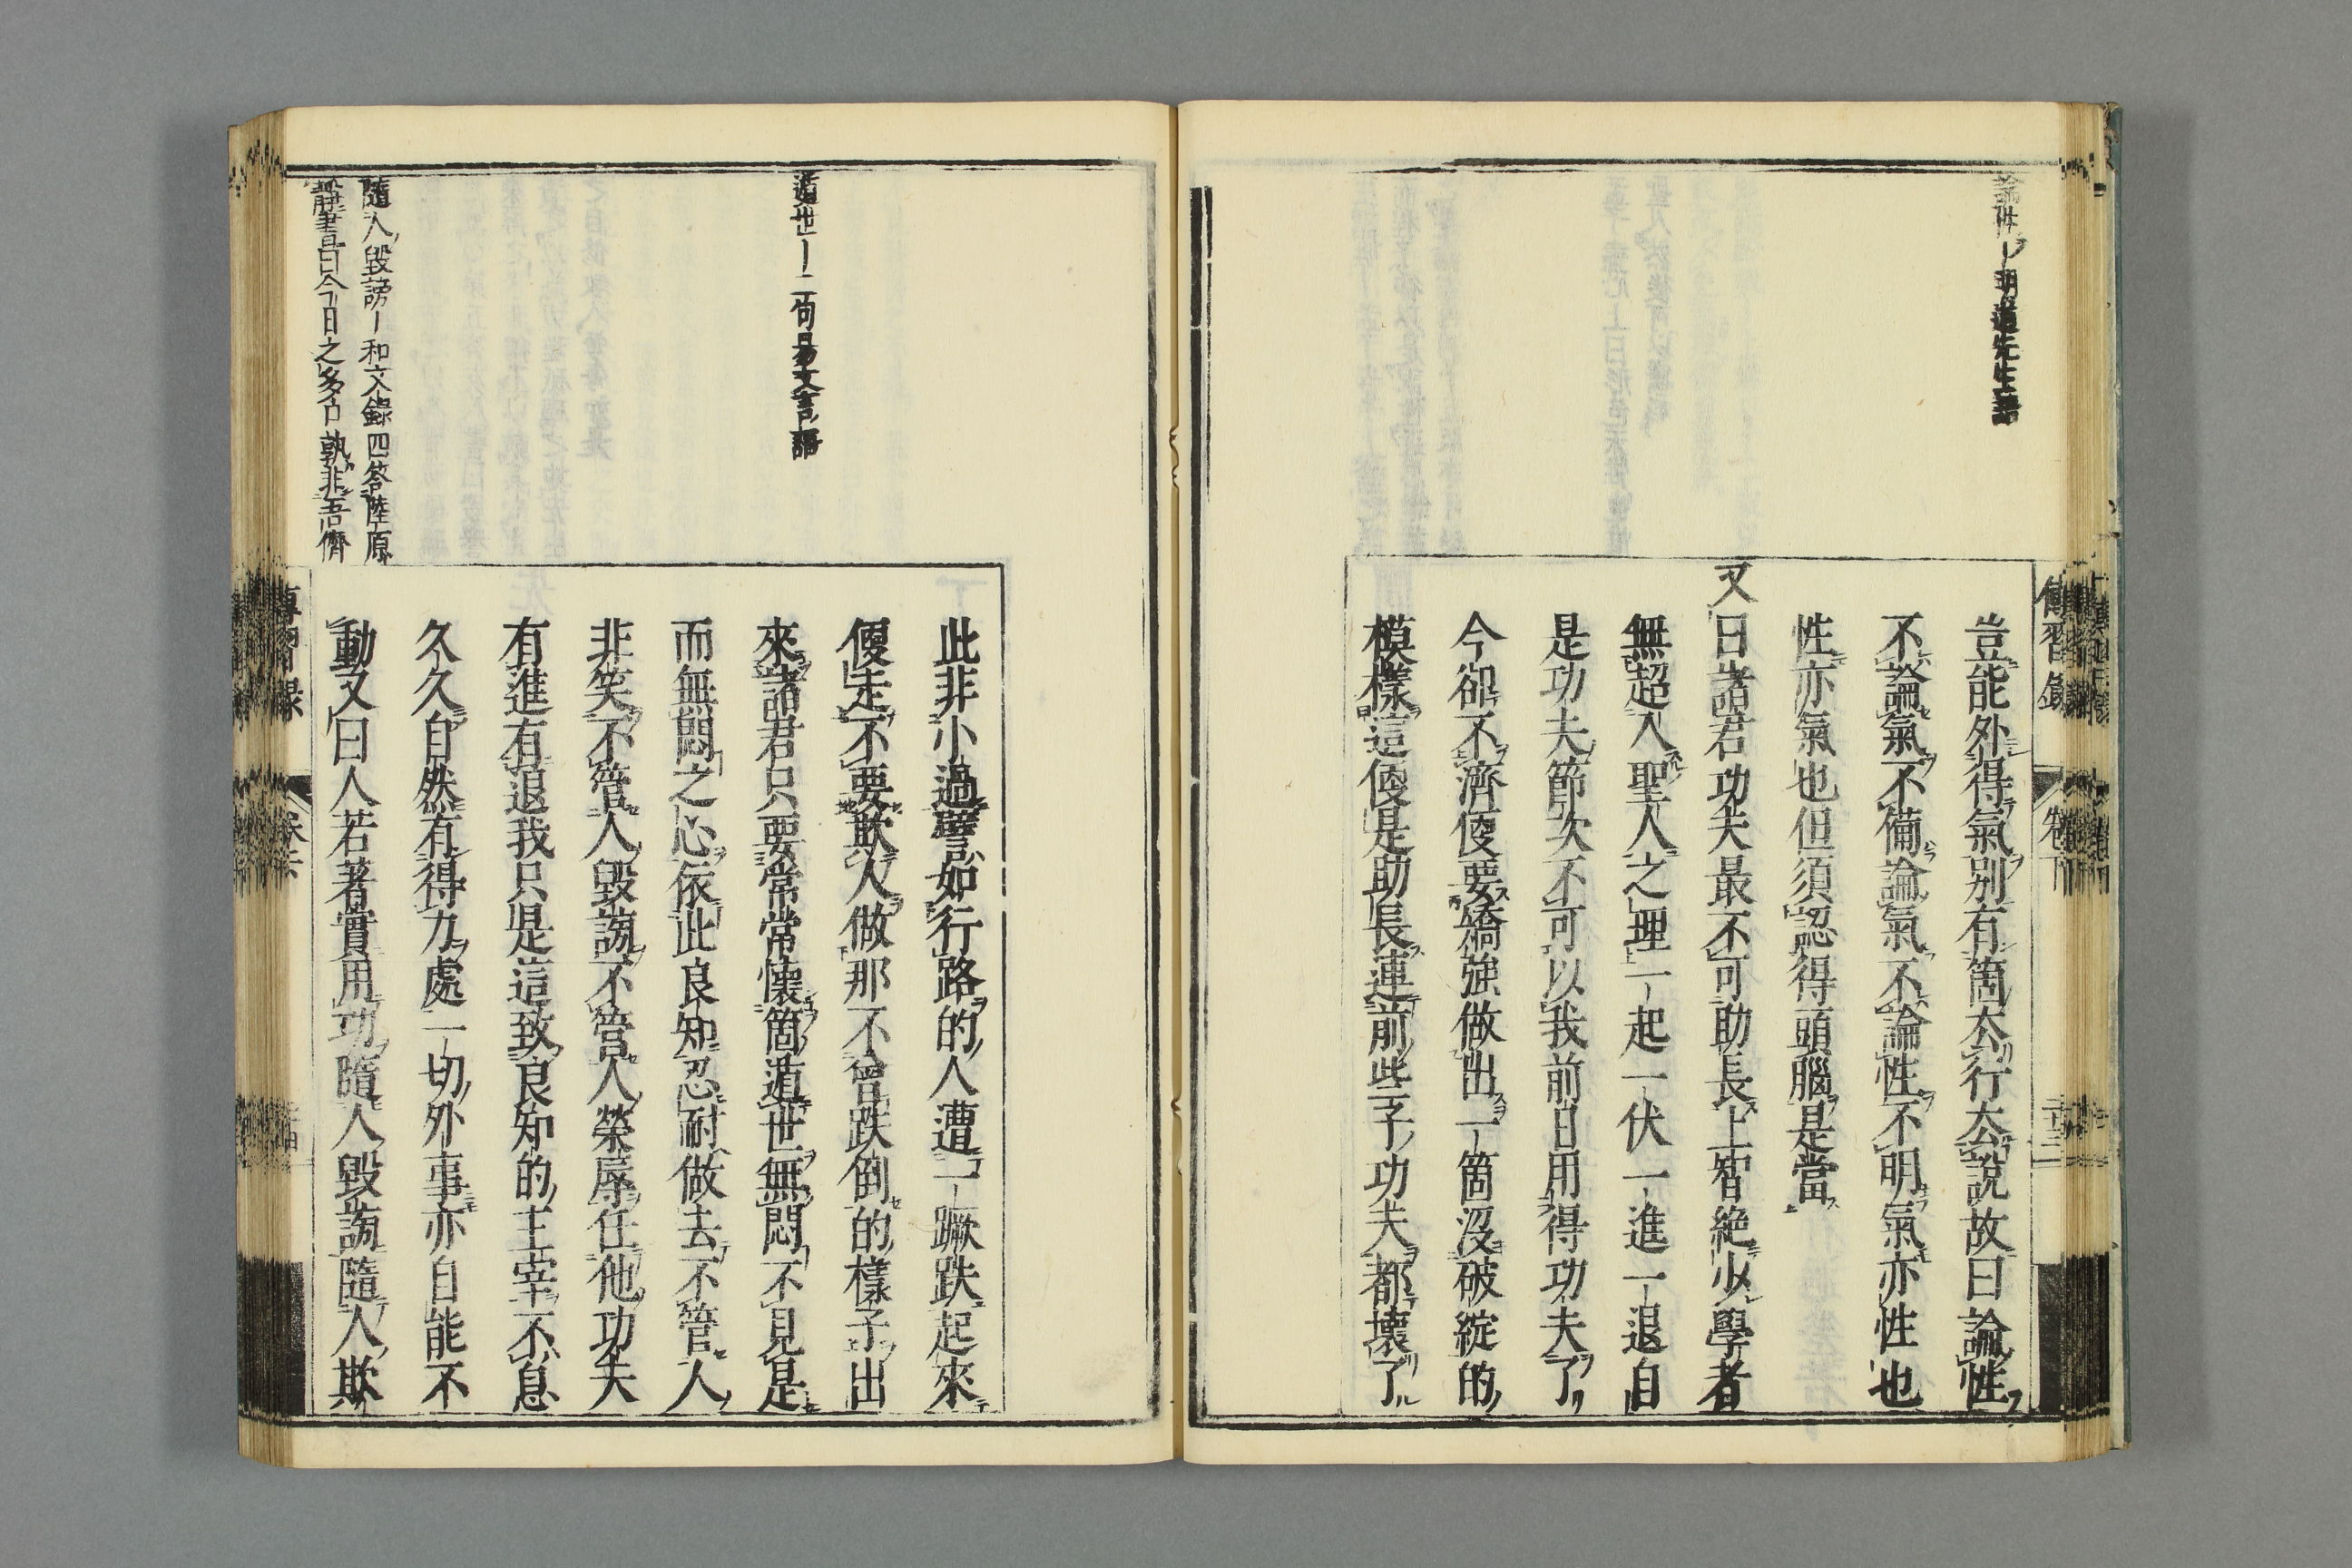 論性ー明道先生語
豈能外得氣別有箇去行去說故曰論性
不論氣不備論氣不論性不明氣亦性也
性亦氣也但須認得頭腦是當
又曰諸君功夫最不可助長上智絶少學者
無超入聖人之理一起一伏一進一退自
是功夫節次不可以我前日用得功夫了
今卻不濟便要矯強做出一箇沒破綻的
模樣這便是助長連前些子功夫都壞了
傳習錄 卷下 二十三
遁世ー二句易文言語
隨人毀謗ー和文錄四答陸原
靜書曰今日之多口孰非吾儕
此非小過譬如行路的人遭一蹶跌起來
便走不要欺人做那不曾跌倒的樣子出
來諸君只要常常懷箇遁世無悶不見是
而無悶之心依此良知忍耐做去不管人
非笑不管人毀謗不管人榮辱任他功夫
有進有退我只是這致良知的主宰不息
久久自然有得力處一切外事亦自能不
動又曰人若著實用功隨人毀謗隨人欺